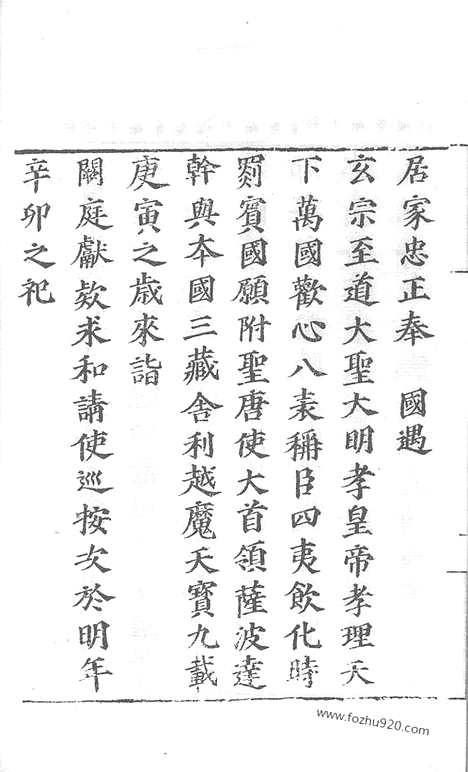 居家忠正奉　國遇
玄宗至道大聖大明孝皇帝孝理天
下萬國歡心八表稱臣四夷飲化時
罽賓國願附聖唐使大首領薩波達
幹與本國三藏舍利越魔天寶九載
庚寅之歳來詣
闕庭獻欵求和請使巡按次於明年
辛卯之祀
www.fozhu920.com